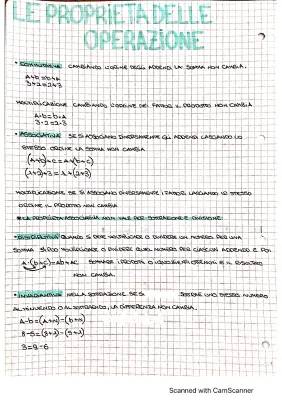 LE PROPRIETÀ DELLE
OPERAZIONE
• COMMUTATIVA CAMBIANDO L'ORDINE DEGLI ADDENDI LA SOMMA NON CAMBIA.
A+b=b+A
3+2=2+3
MOLTIPLICAZIONE CAMBIANDO L'ORDINE DEI FATTORI IL PRODOTTO NON CAMBIA
A·b=b·A
3·2=2·3
• ASSOCIATIVA SE SI ASSOCIANO DIVERSAMENTE GLI ADDENDI LASCIANDO LO
STESSO ORDINE LA SOMMA NON CAMBIA
(A+b)+c=A+(b+c)
(1+2)+3=1+(2+3)
MOLTIPLICAZIONE SE SI ASSOCIANO DIVERSAMENTE I FATTORI LASCIANDO LO STESSO
ORDINE IL PRODOTTO NON CAMBIA
LA PROPRIETÀ ASSOCIATIVA NON VALE PER SOTTRAZIONE E DIVISIONE
• DISTRIBUTIVA QUANDO SI DEVE MOLTIPLICARE O DIVIDERE UN NUMERO PER UNA
SOMMA SI PUÒ MOLTIPLICARE O DIVIDERE QUEL NUMERO PER CIASCUN ADDENDO E POI
A·(b+c)=Ab+Ac SOMMARE I PRODOTTI O I QUOZIENTI OTTENUTI E IL RISULTATO
NON CAMBIA.
• INVARIANTIVA NELLA SOTTRAZIONE SE SI STESSO NUMERO
AL MINUENDO O AL SOTTRAENDO, LA DIFFERENZA NON CAMBIA.
A-b=(A+n)-(b+n)
8-5=(8+1)-(5+1)
3=9-6
Scanned with CamScanner